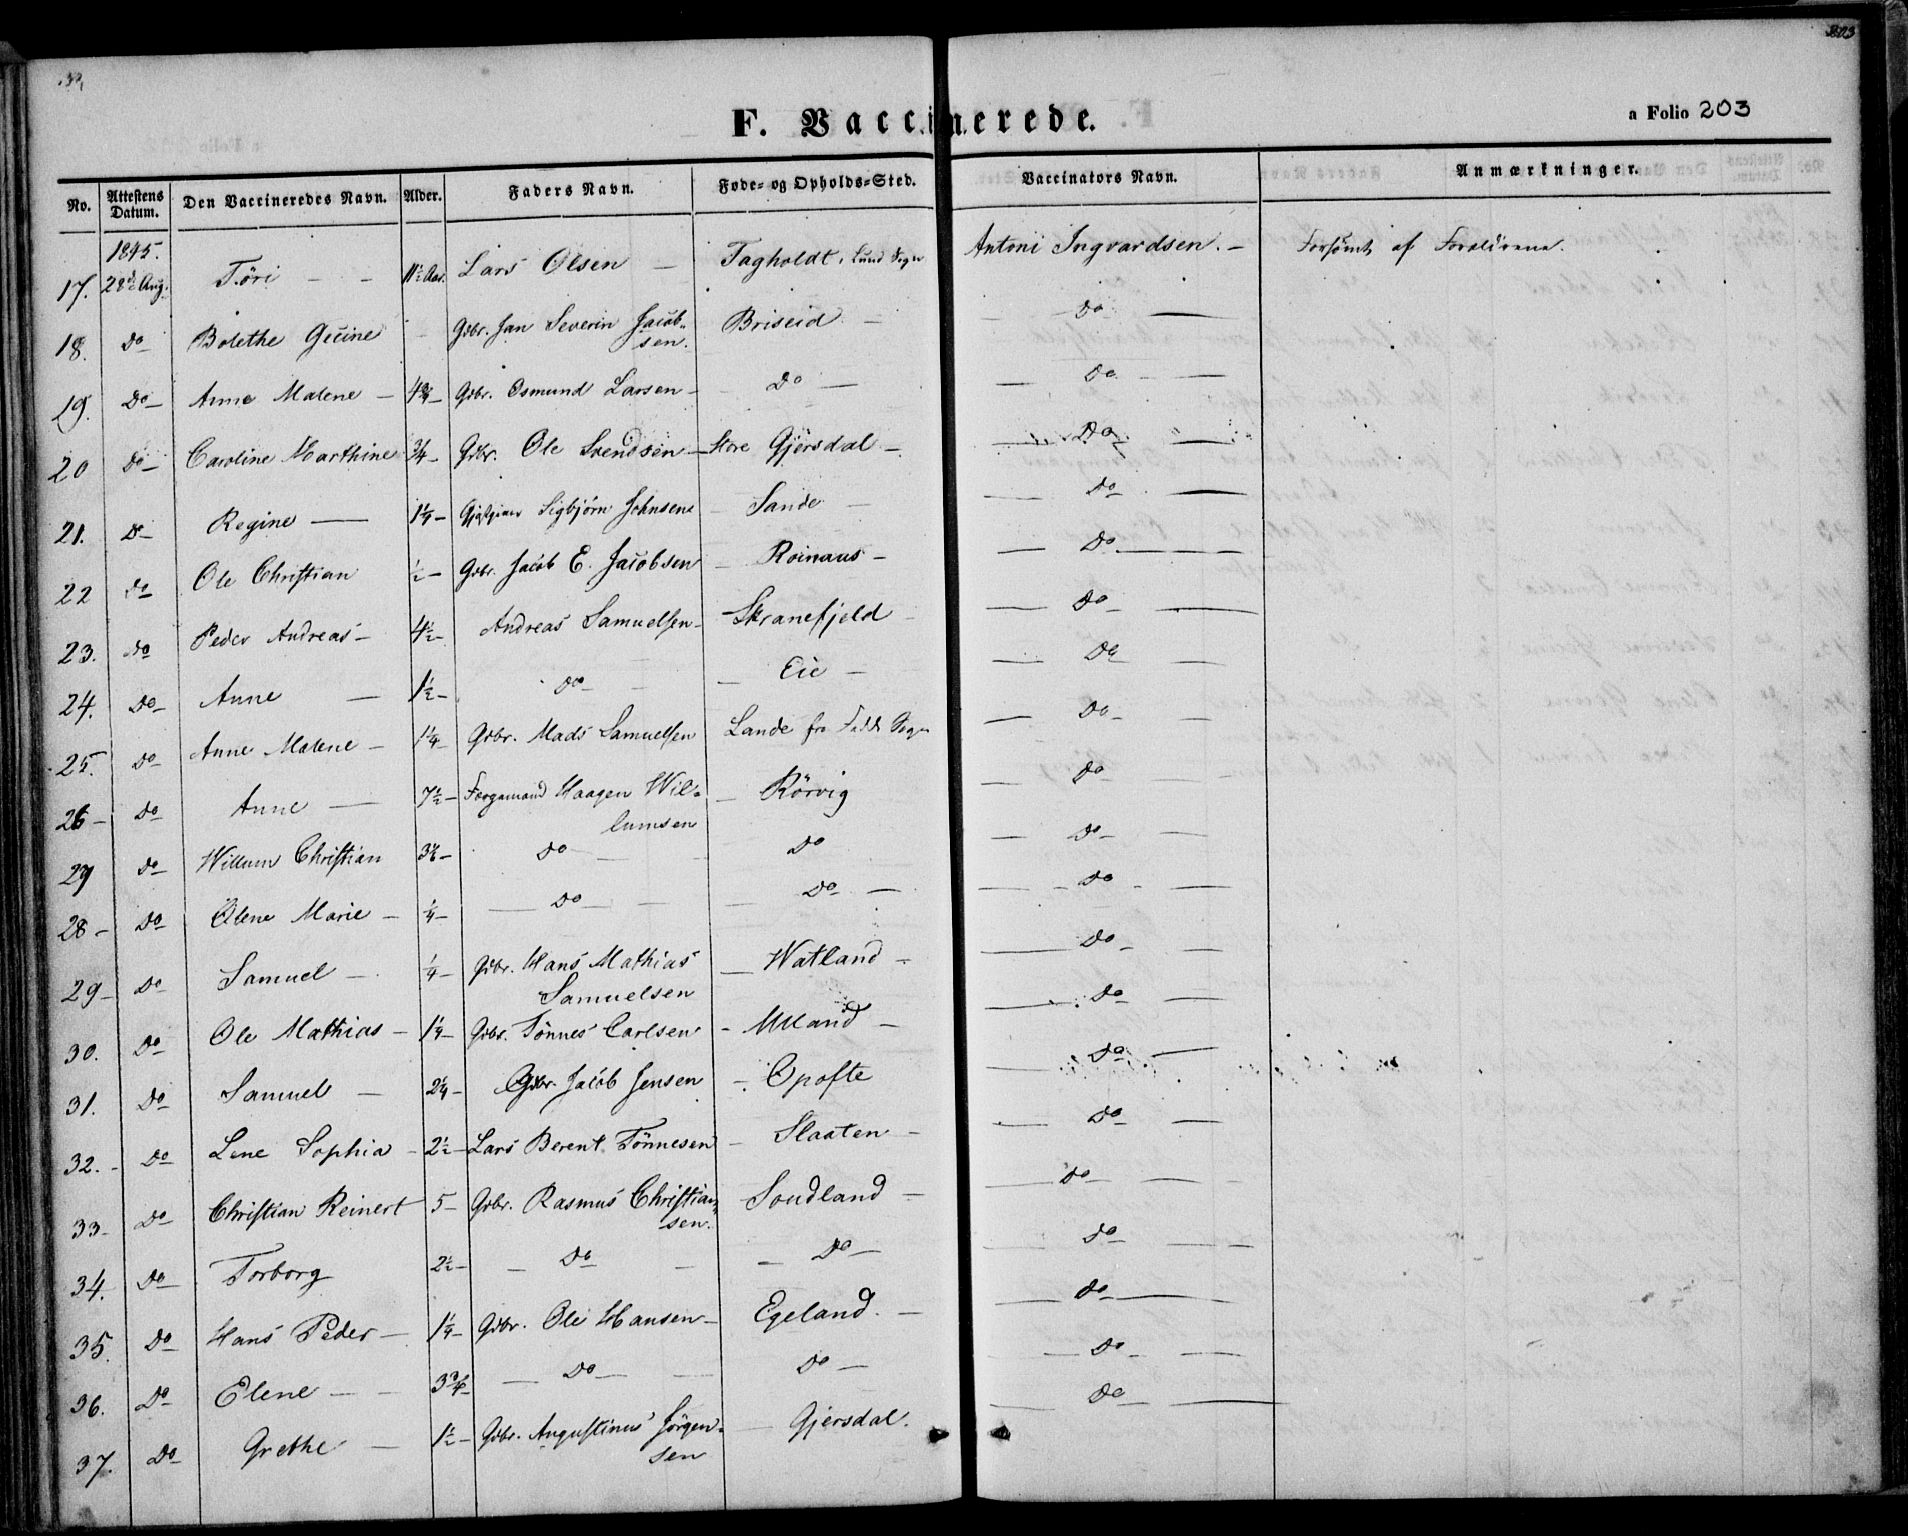 203
F. Vaccinerede.
a Folio 203
No. Attestens Datum. Den Vaccineredes Navn. Alder. Faders Navn. Føde- og Opholds-Sted. Vaccinators Navn. Anmærkninger.
1845.
17. 28de Aug. Töri - - 11½ Aar. Lars Olsen - Fagholdt, Lund Sogn Antoni Ingvardsen. - Forsömt af Forældrene.
18. Do Bolethe Gecine - Gdbr. Jan Severin Jacob- Briseid - Do -
sen.
19. Do - Anne Malene - Gdbr. Osmund Larsen - Do - - Do -
20 Do - Caroline Marthine ¾ - Gdbr. Ole Svendsen - Store Gjersdal - - Do -
21. Do - Regine - 1¼ - Sigbjörn Johnsen - Sande - - Do -
22 Do Ole Christian ½ - Gdbr. Jacob E. Jacobsen - Roinaas - - Do -
23. Do Peder Andreas - 4½ - Andreas Samuelsen - Skranefjeld - - Do -
24. Do - Anne - 1½ - Do - - Eie - - Do -
25. Do Anne Malene - 1¼ - Gdbr. Mads Samuelsen Lande fra Sogn - Do -
26 - Do Anne - 7½ - Færgemand Haagen Wil- - Rörvig - Do -
lumsen
27 Do - Willum Christian 3½ - Do - Do - Do -
28 - Do Olene Marie - ¼ - - Do - - Do - - Do -
29 - Do - Samuel - ¼ - Gdbr. Hans Mathias - Watland - - Do -
Samuelsen
30. Do Ole Mathias - 1¼ - Gdbr. Tönnes Carlsen - Ulland - - Do -
31. Do Samuel - 2¼ - Gdbr. Jacob Jensen - Opofte - Do -
32. - Do Lene Sophia - 2½ - Lars Berent Tönnesen - Slaaten - - Do -
33 - Do Christian Reinert 5 - Gdbr. Rasmus Christian- Soudland - - Do -
sen.
34. Do - Torborg 2½ - - Do - - Do - - Do -
35. Do Hans Peder - 1¼ - Gdbr. Ole Hansen - Egeland. - - Do -
36. Do - Elene - - 3¾ - Do - - Do - - Do -
37. Do Grethe - 1½ - Gdbr. Augustinus Jörgen- - Gjersdal. - Do -
sen